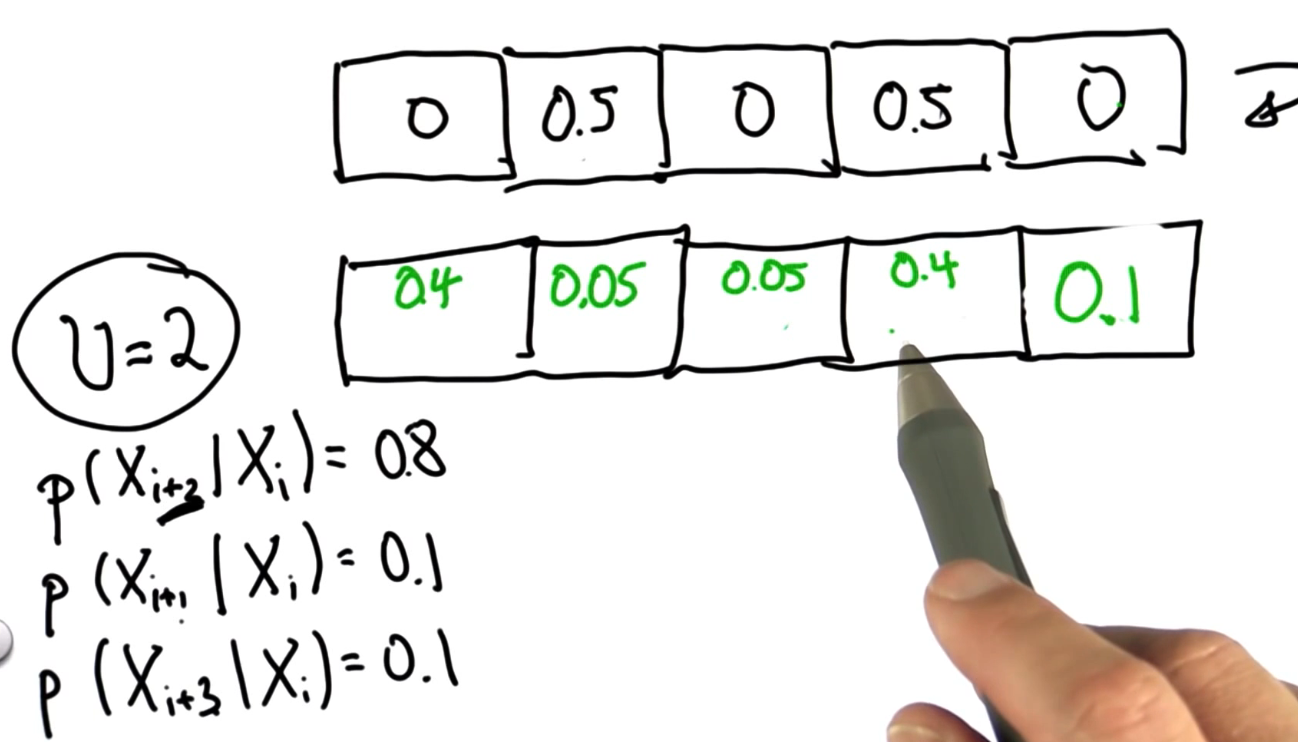 0 0.5 0 0.5 0
0.4 0.05 0.05 0.4 0.1
U=2
p(X_{i+2}|X_i)=0.8
p(X_{i+1}|X_i)=0.1
p(X_{i+3}|X_i)=0.1